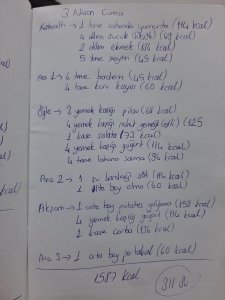 3 Nisan Cuma
Kahvaltı → 1 tane sahanda yumurta (114 kcal)
4 dilim sucuk (69 kcal)
2 dilim ekmek (136 kcal)
5 tane zeytin (45 kcal)
Ara 1 → 6 tane badem (45 kcal)
4 tane kuru kayısı (60 kcal)
Öğle → 3 yemek kaşığı pilav (68 kcal)
4 yemek kaşığı nohut yemeği (etli) (125
1 kase salata (73 kcal)
4 yemek kaşığı yoğurt (114 kcal)
4 tane lahana sarma (136 kcal)
Ara 2 → 1 su bardağı süt (114 kcal)
1 orta boy elma (60 kcal)
Akşam → 1 orta boy patates yağlama (158 kcal)
4 yemek kaşığı yoğurt (114 kcal)
1 kase çorba (136 kcal)
Ara 3 → 1 orta boy portakal (60 kcal)
1587 kcal
kcal)